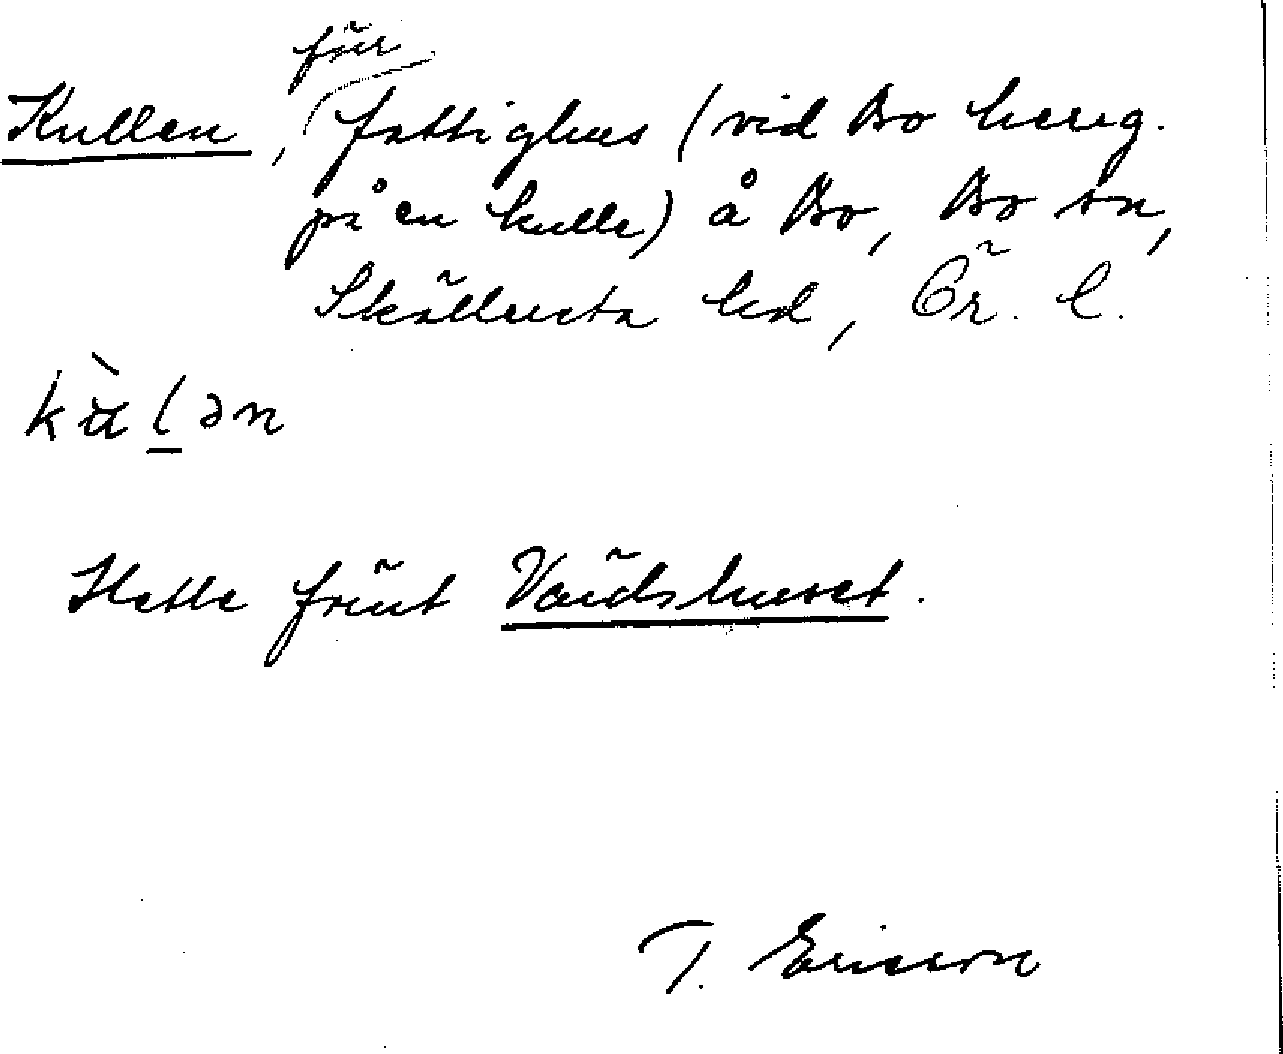 för
Kullen, fattighus (vid Bo herrg.
på en kulle) å Bo, Bo sn,
Skyllersta hd, Ör. l.
kùlən
Hette förut Vårdshuset.
T. Ericson